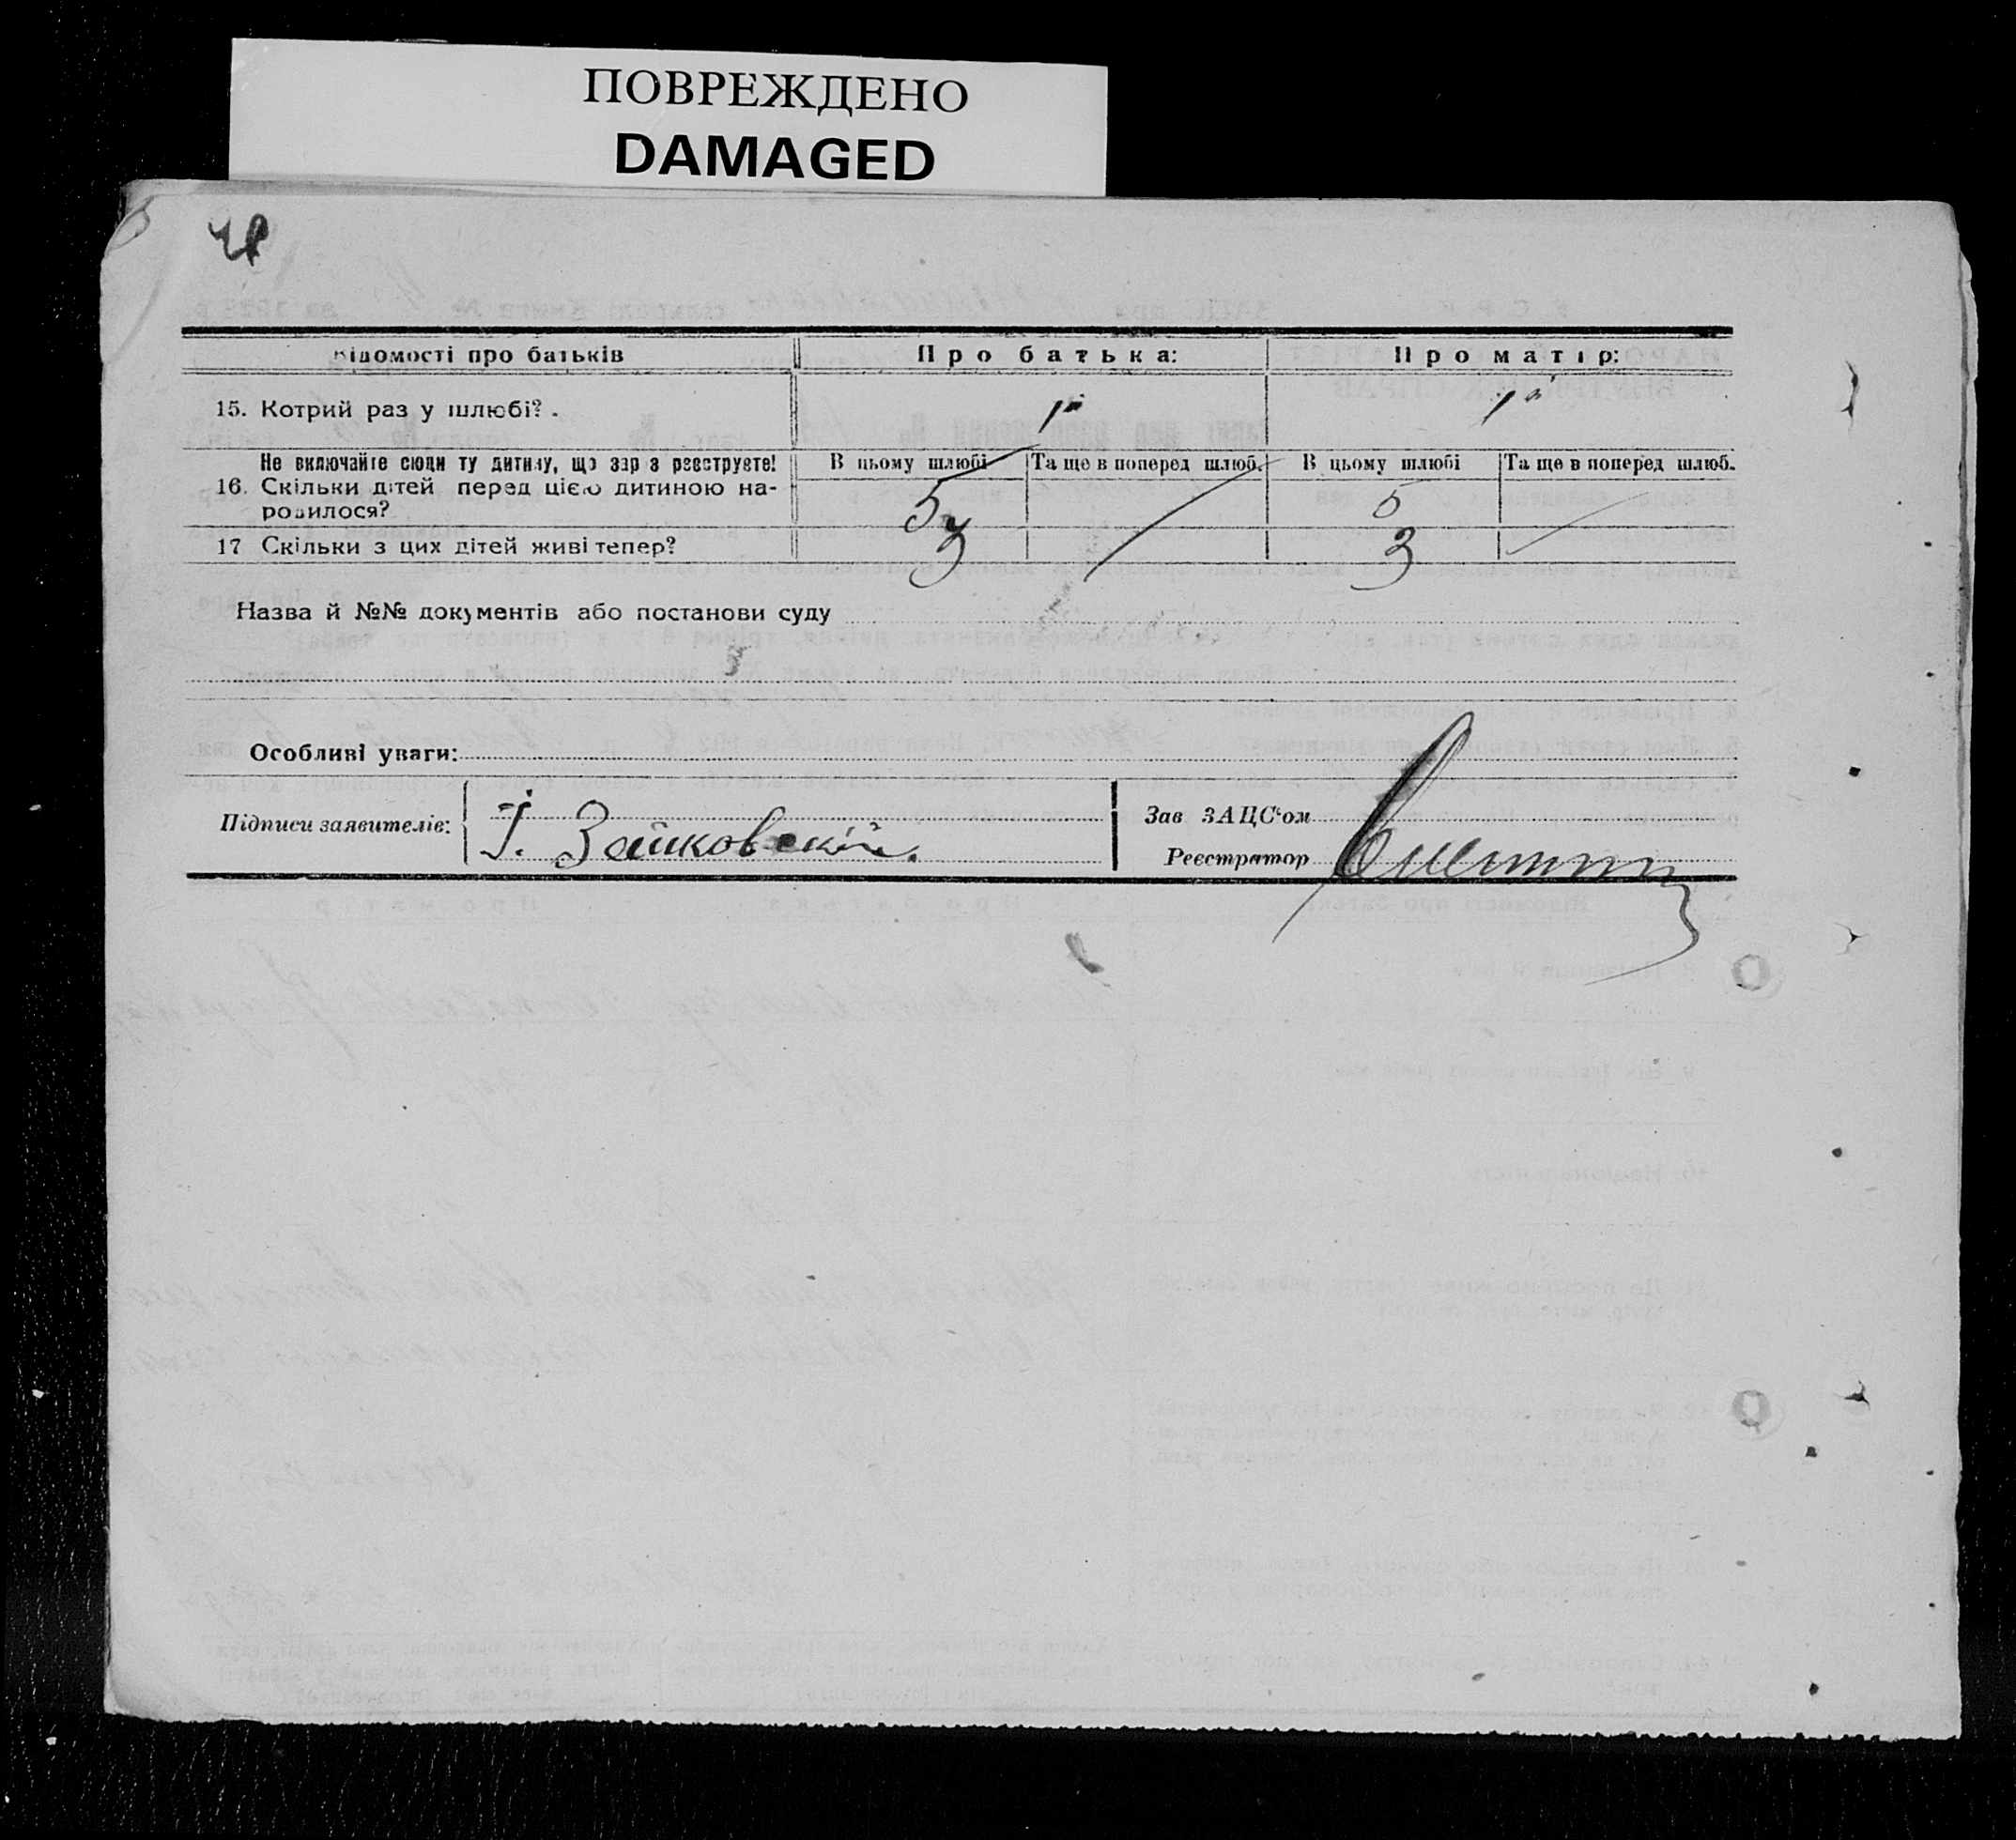 ПОВРЕЖДЕНО
DAMAGED
Відомості про батьків
Про батька:
Про матір:
15. Котрий раз у шлюбі?.
1й
1й
Не включайте сюди ту дитину, що зараз реєструєте!
В цьому шлюбі
Та ще в поперед шлюб.
В цьому шлюбі
Та ще в поперед шлюб.
16. Скільки дітей перед цією дитиною на-
родилося?
5
5
17 Скільки з цих дітей живі тепер?
3
3
Назва й №№ документів або постанови суду
Особливі уваги:
Підписи заявителів:
І. Зайковскій.
Зав ЗАЦС‘ом
Реєстратор